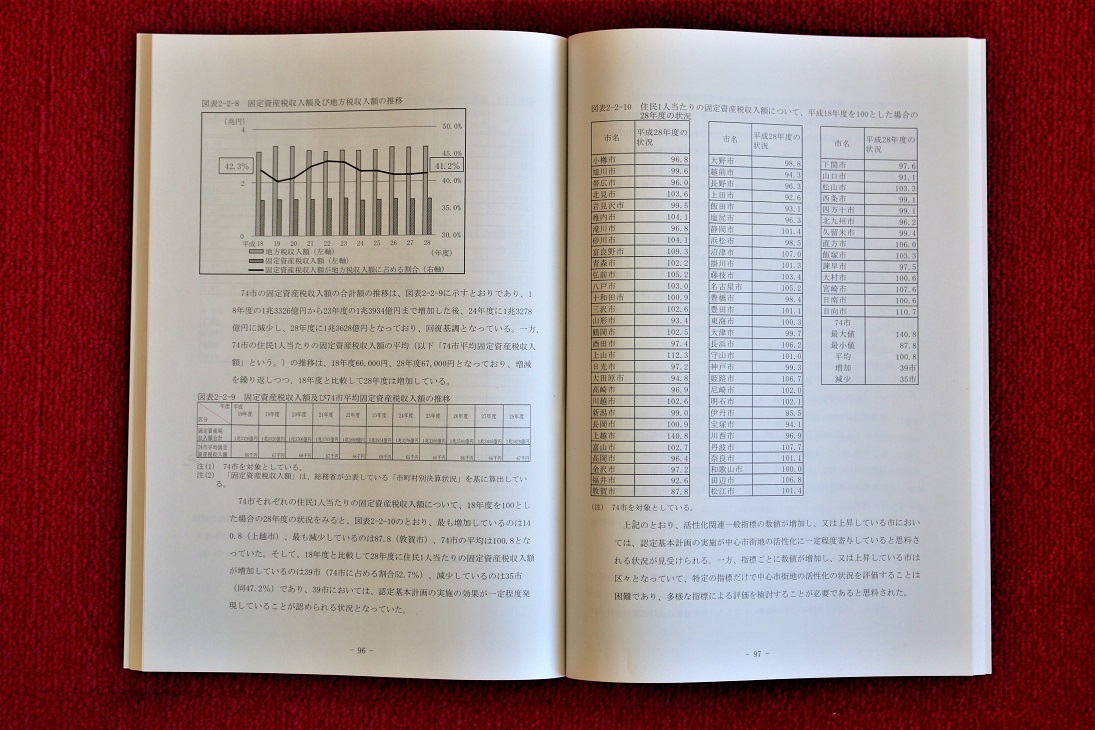 図表2-2-8 固定資産税収入額及び地方税収入額の推移
(兆円)
4
2
0
50.0%
45.0%
40.0%
35.0%
30.0%
42.3%
41.2%
平成18 19 20 21 22 23 24 25 26 27 28
(年度)
地方税収入額(左軸)
固定資産税収入額(左軸)
固定資産税収入額が地方税収入額に占める割合(右軸)
74市の固定資産税収入額の合計額の推移は、図表2-2-9に示すとおりであり、1
8年度の1兆3326億円から23年度の1兆3934億円まで増加した後、24年度に1兆3278
億円に減少し、28年度に1兆3628億円となっており、回復基調となっている。一方、
74市の住民1人当たりの固定資産税収入額の平均(以下「74市平均固定資産税収入
額」という。)の推移は、18年度66,000円、28年度67,000円となっており、増減
を繰り返しつつ、18年度と比較して28年度は増加している。
図表2-2-9 固定資産税収入額及び74市平均固定資産税収入額の推移
年度 区分 平成18年度 19年度 20年度 21年度 22年度 23年度 24年度 25年度 26年度 27年度 28年度
固定資産税収入額合計
74市平均固定資産税収入額
注(1) 74市を対象としている。
注(2) 「固定資産税収入額」は、総務省が公表している「市町村別決算状況」を基に算出してい
る。
74市それぞれの住民1人当たりの固定資産税収入額について、18年度を100とし
た場合の28年度の状況をみると、図表2-2-10のとおり、最も増加しているのは14
0.8(上越市)、最も減少しているのは87.8(敦賀市)、74市の平均は100.8とな
っていた。そして、18年度と比較して28年度に住民1人当たりの固定資産税収入額
が増加しているのは39市(74市に占める割合52.7%)、減少しているのは35市
(同47.2%)であり、39市においては、認定基本計画の実施の効果が一定程度発
現していることが認められる状況となっていた。
- 96 -
図表2-2-10 住民1人当たりの固定資産税収入額について、平成18年度を100とした場合の
28年度の状況
市名 平成28年度の状況
小樽市 96.8
旭川市 99.6
帯広市 96.0
北見市 103.6
岩見沢市 99.5
稚内市 104.1
滝川市 96.8
砂川市 104.1
富良野市 109.3
青森市 102.2
弘前市 105.2
八戸市 103.0
十和田市 100.9
三沢市 102.6
山形市 93.4
鶴岡市 102.5
酒田市 97.4
上山市 112.3
日光市 97.2
大田原市 94.8
高崎市 96.9
川越市 102.6
新潟市 99.0
長岡市 100.9
上越市 140.8
富山市 102.7
高岡市 96.4
金沢市 97.2
福井市 92.6
敦賀市 87.8
市名 平成28年度の状況
大野市 98.8
越前市 94.3
長野市 96.3
上田市 92.6
飯田市 93.1
塩尻市 96.3
静岡市 101.4
浜松市 98.5
沼津市 107.0
掛川市 101.3
藤枝市 103.4
名古屋市 105.2
豊橋市 98.4
豊田市 101.1
東海市 100.3
大津市 99.7
長浜市 106.2
守山市 101.0
神戸市 99.3
姫路市 106.7
尼崎市 102.0
明石市 102.1
伊丹市 95.5
宝塚市 94.1
川西市 96.9
丹波市 107.7
奈良市 101.1
和歌山市 100.0
田辺市 106.8
松江市 101.4
市名 平成28年度の状況
下関市 97.6
山口市 91.1
松山市 103.3
西条市 99.1
四万十市 99.1
北九州市 96.2
久留米市 99.4
直方市 106.0
飯塚市 103.3
諫早市 97.5
大村市 100.6
宮崎市 107.6
日南市 100.6
日向市 110.7
74市
最大値 140.8
最小値 87.8
平均 100.8
増加 39市
減少 35市
(注) 74市を対象としている。
上記のとおり、活性化関連一般指標の数値が増加し、又は上昇している市におい
ては、認定基本計画の実施が中心市街地の活性化に一定程度寄与していると思料さ
れる状況が見受けられる。一方、指標ごとに数値が増加し、又は上昇している市は
区々となっていて、特定の指標だけで中心市街地の活性化の状況を評価することは
困難であり、多様な指標による評価を検討することが必要であると思料された。
- 97 -